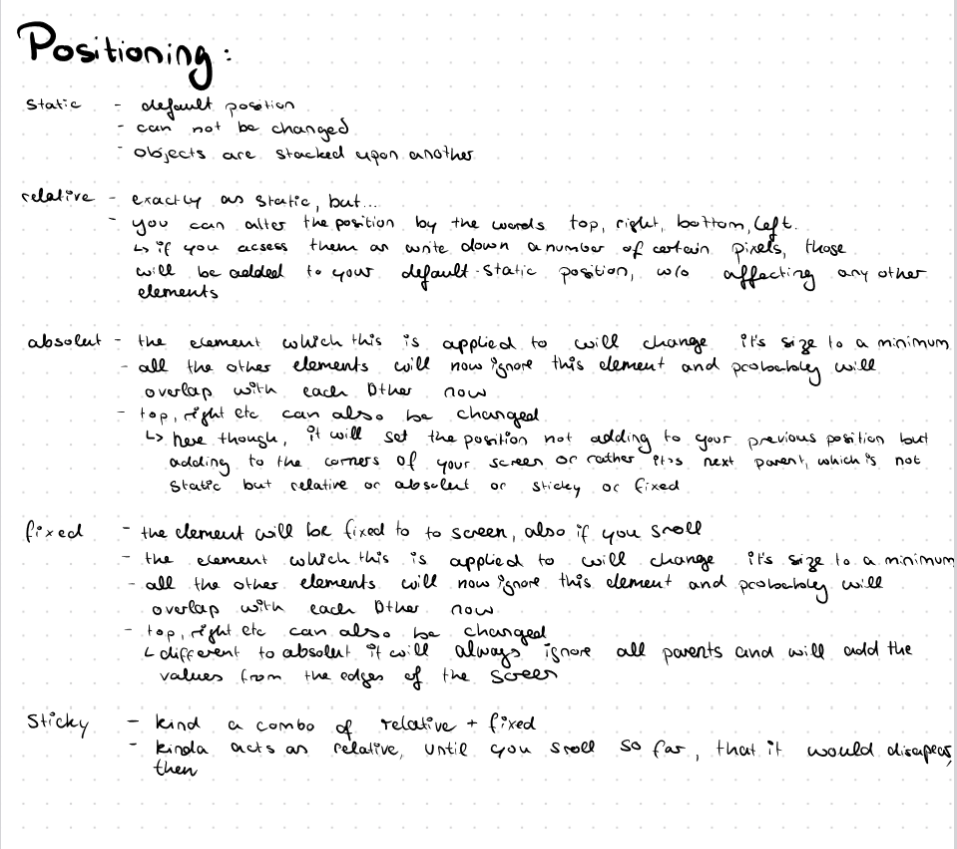 Positioning:
Static - default position
- can not be changed
- objects are stacked upon another
relative - exactly as static, but...
- you can alter the position by the words top, right, bottom, left.
↳ if you acsess them an write down a number of certain pixels, those
will be added to your default static position, w/o affecting any other
elements
absolut - the element which this is applied to will change it's size to a minimum
- all the other elements will now ignore this element and probabley will
overlap with each other now
- top, right etc can also be changed
↳ here though, it will set the position not adding to your previous position but
adding to the corners of your screen or rather it's next parent, which is not
static but relative or absolut or sticky or fixed
fixed - the element will be fixed to to screen, also if you sroll
- the element which this is applied to will change it's size to a minimum
- all the other elements will now ignore this element and probabley will
overlap with each other now
- top, right etc can also be changed
↳ different to absolut it will always ignore all parents and will add the
values from the edges of the screen
Sticky - kind a combo of relative + fixed
- kinda acts as relative, until you sroll so far, that it would disapear,
then